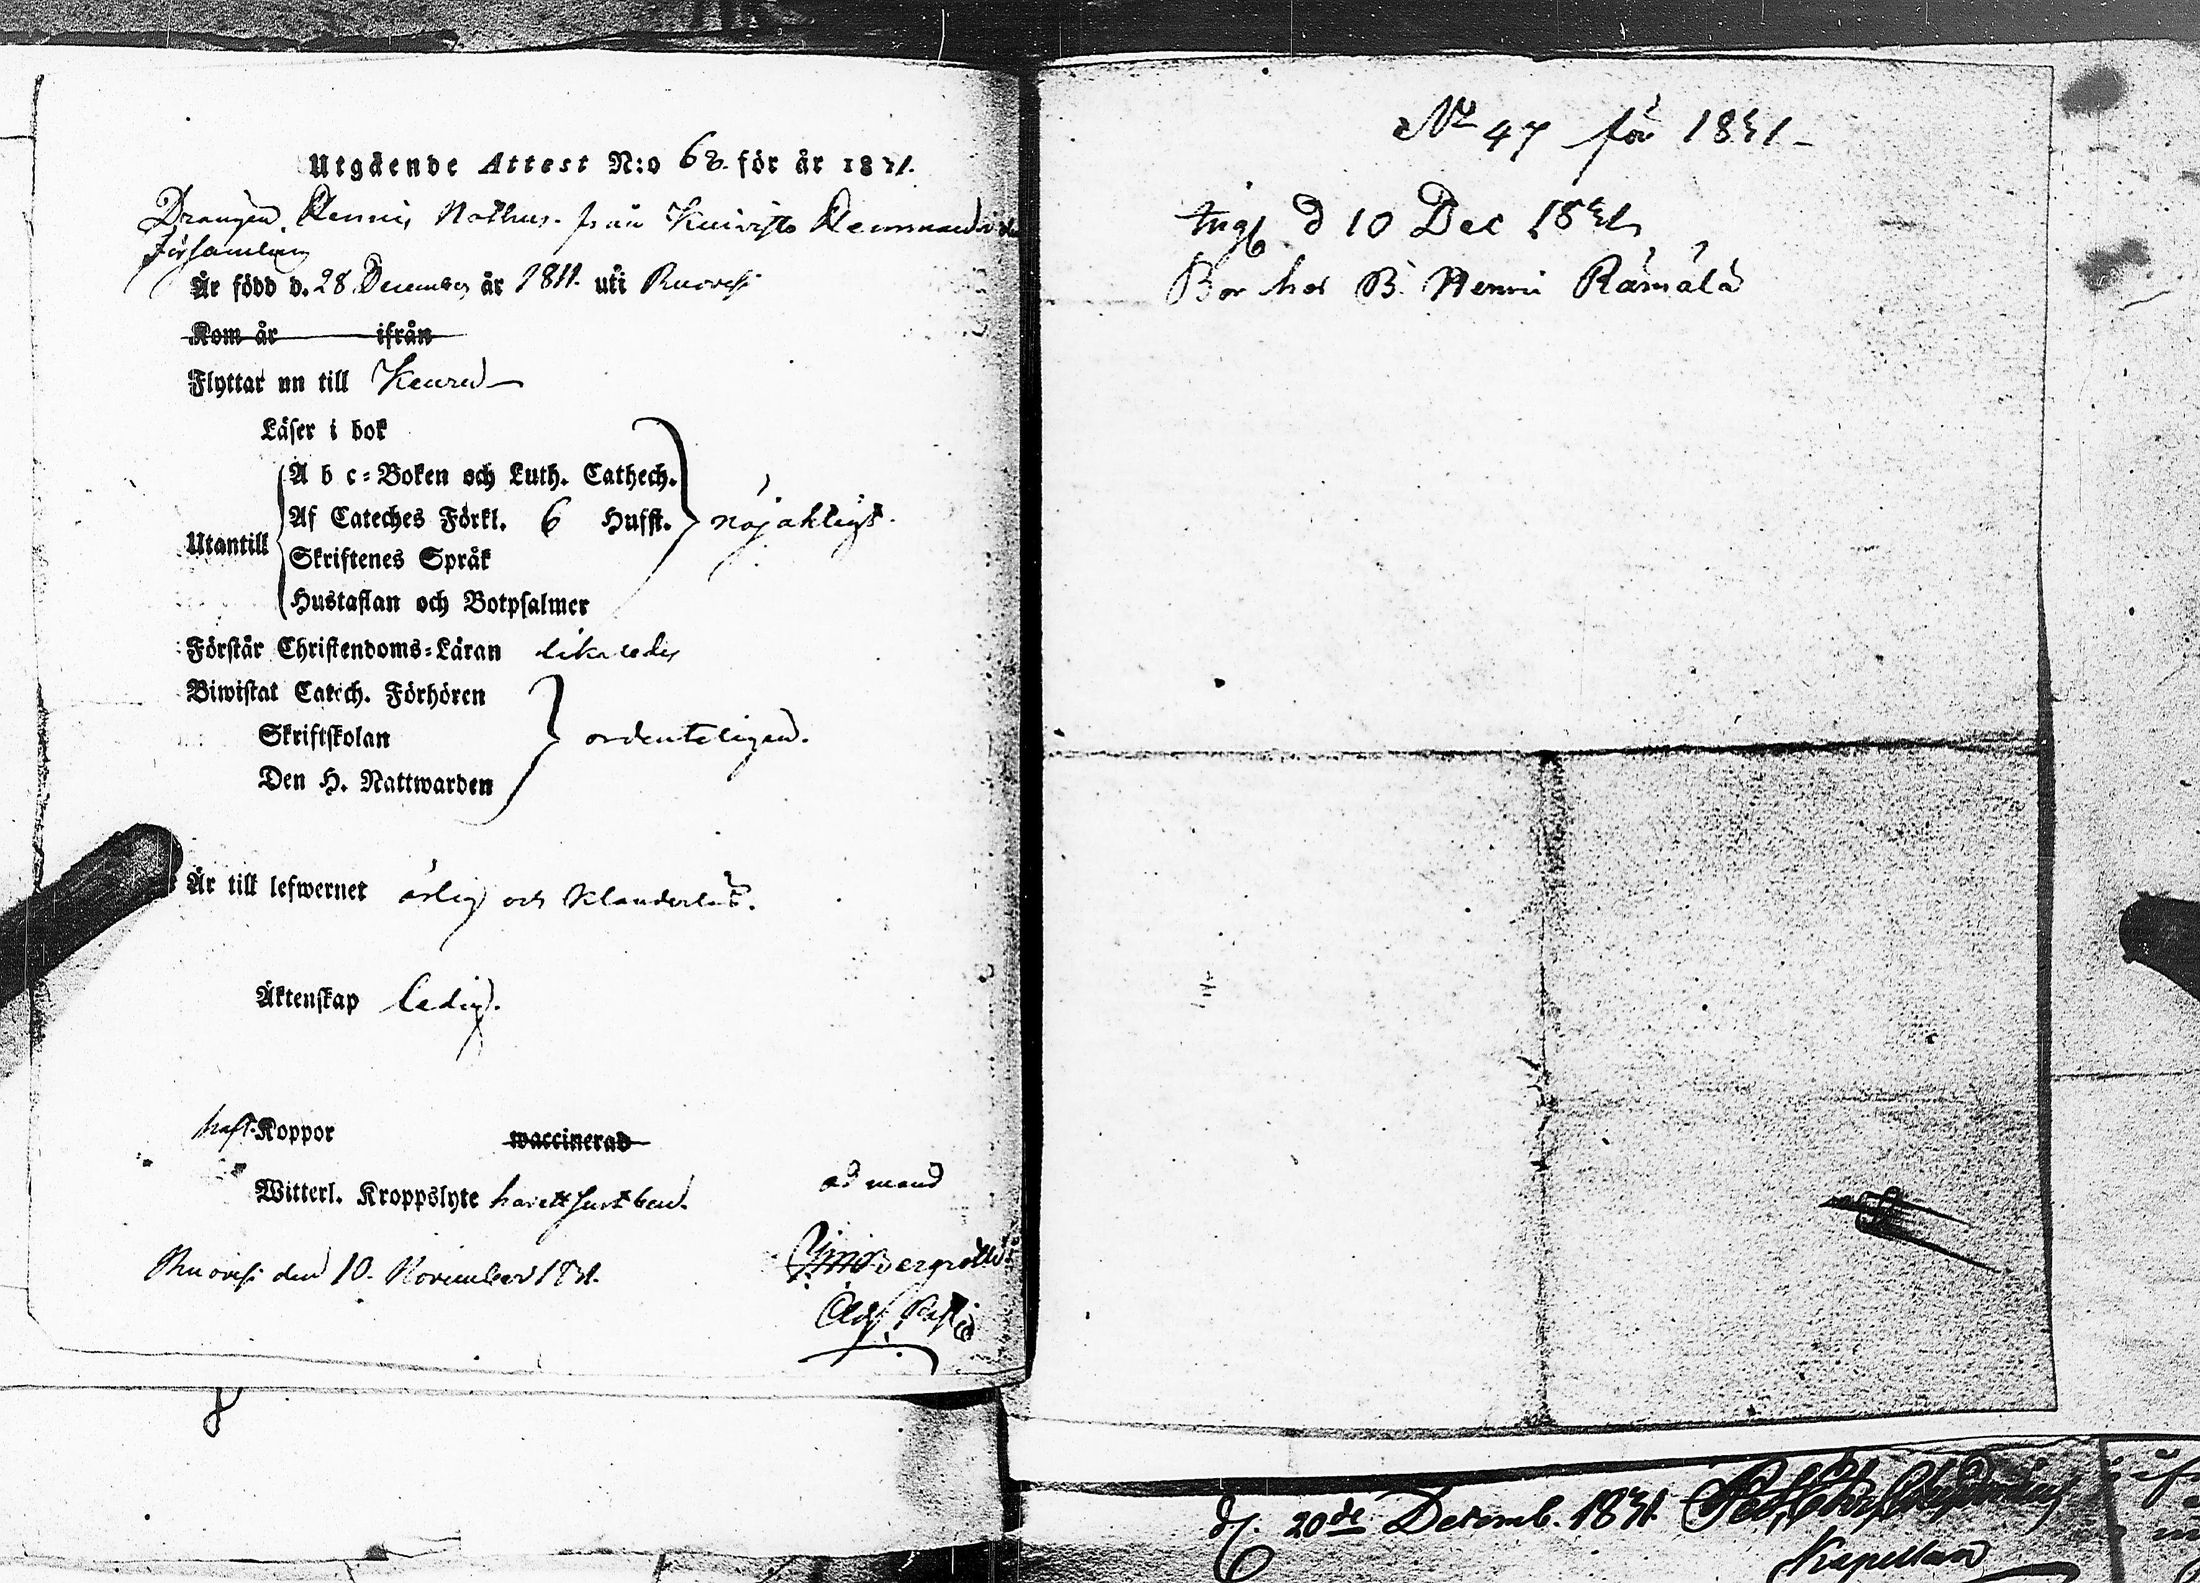 Utgående Attest N:o 68. för år 1831.
Drängen Henric Mathss. från Kuivisto Hemman i
Församling
Är född d. 28 December år 1811. uti Ruovesi
Kom år ifrån
Flyttar nu till Keuru
Läser i bok
A b c-Boken och Luth. Cathech.
Af Cateches Förkl. 6 Hufst. nöjaktigt.
Utantill
Skriftenes Språk
Hustaflan och Botpsalmer
Förstår Christendoms-Läran likaledes
Biwistat Catech. Förhören
Skriftskolan ordenteligen.
Den H. Nattwarden
Är till lefwernet ärlig och klanderlös.
Äktenskap ledig.
haft Koppor waccinerad
Witterl. Kroppslyte har ett sjukt ben.
ad mand
Ruovesi den 10. November 1831.
Bergroth
No 47 för 1831
d 10 Dec 1831
Bor hos B. Henric Rämälä
d. 20de Decemb. 1831.
Kapellan